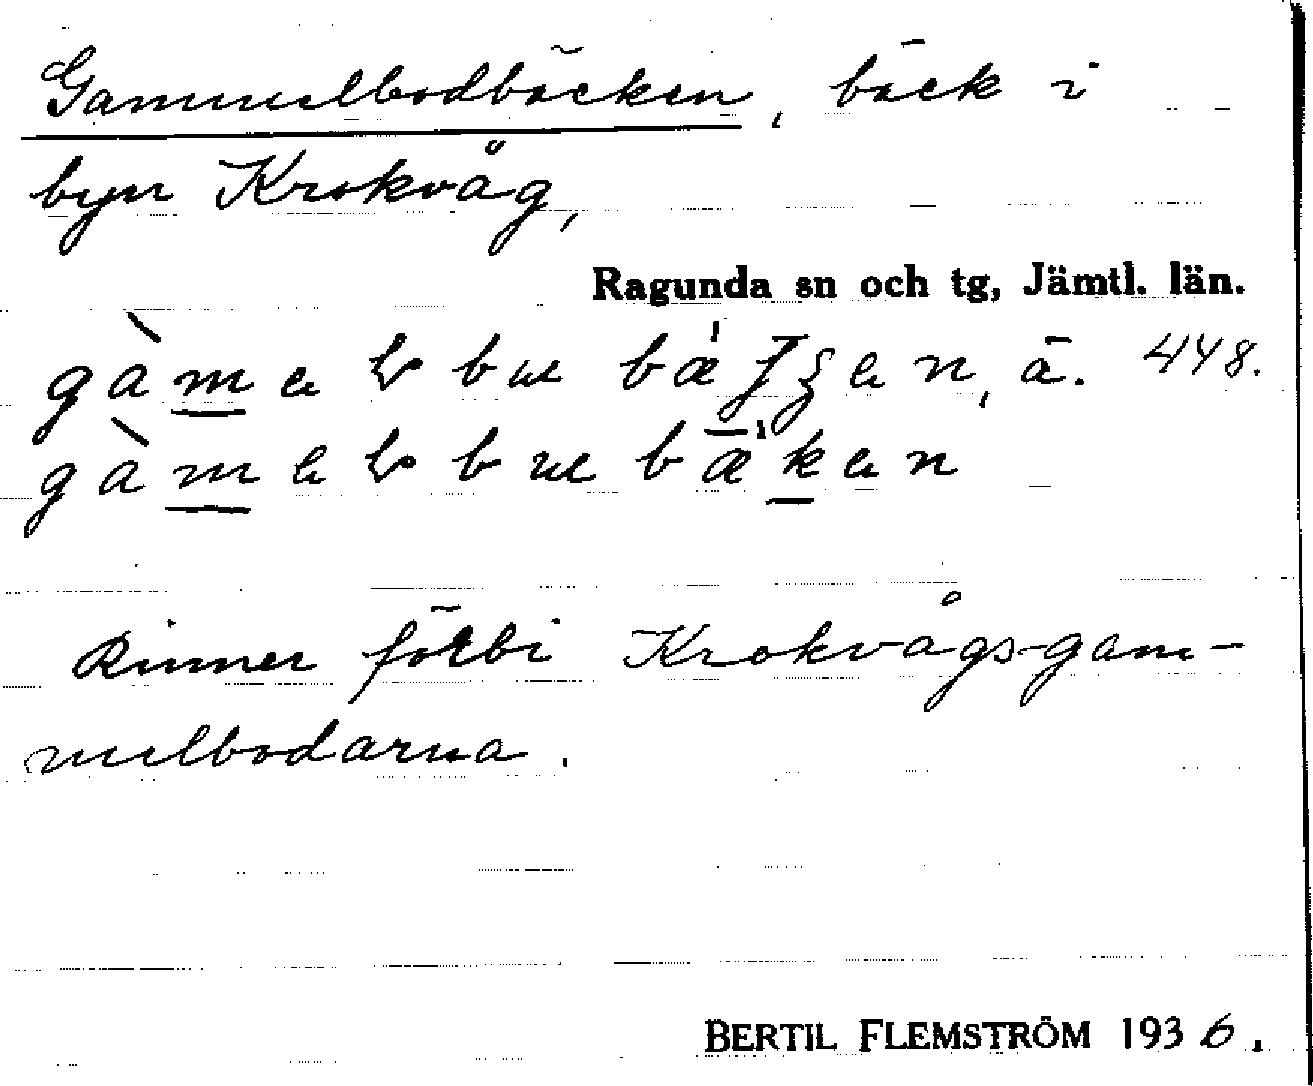 Gammelbodbäcken, bäck i
byn Krokvåg,
Ragunda sn och tg, Jämtl. län.
ä. 448.
Rinner förbi Krokvågs-gam-
melbodarna.
BERTIL FLEMSTRÖM 1936.